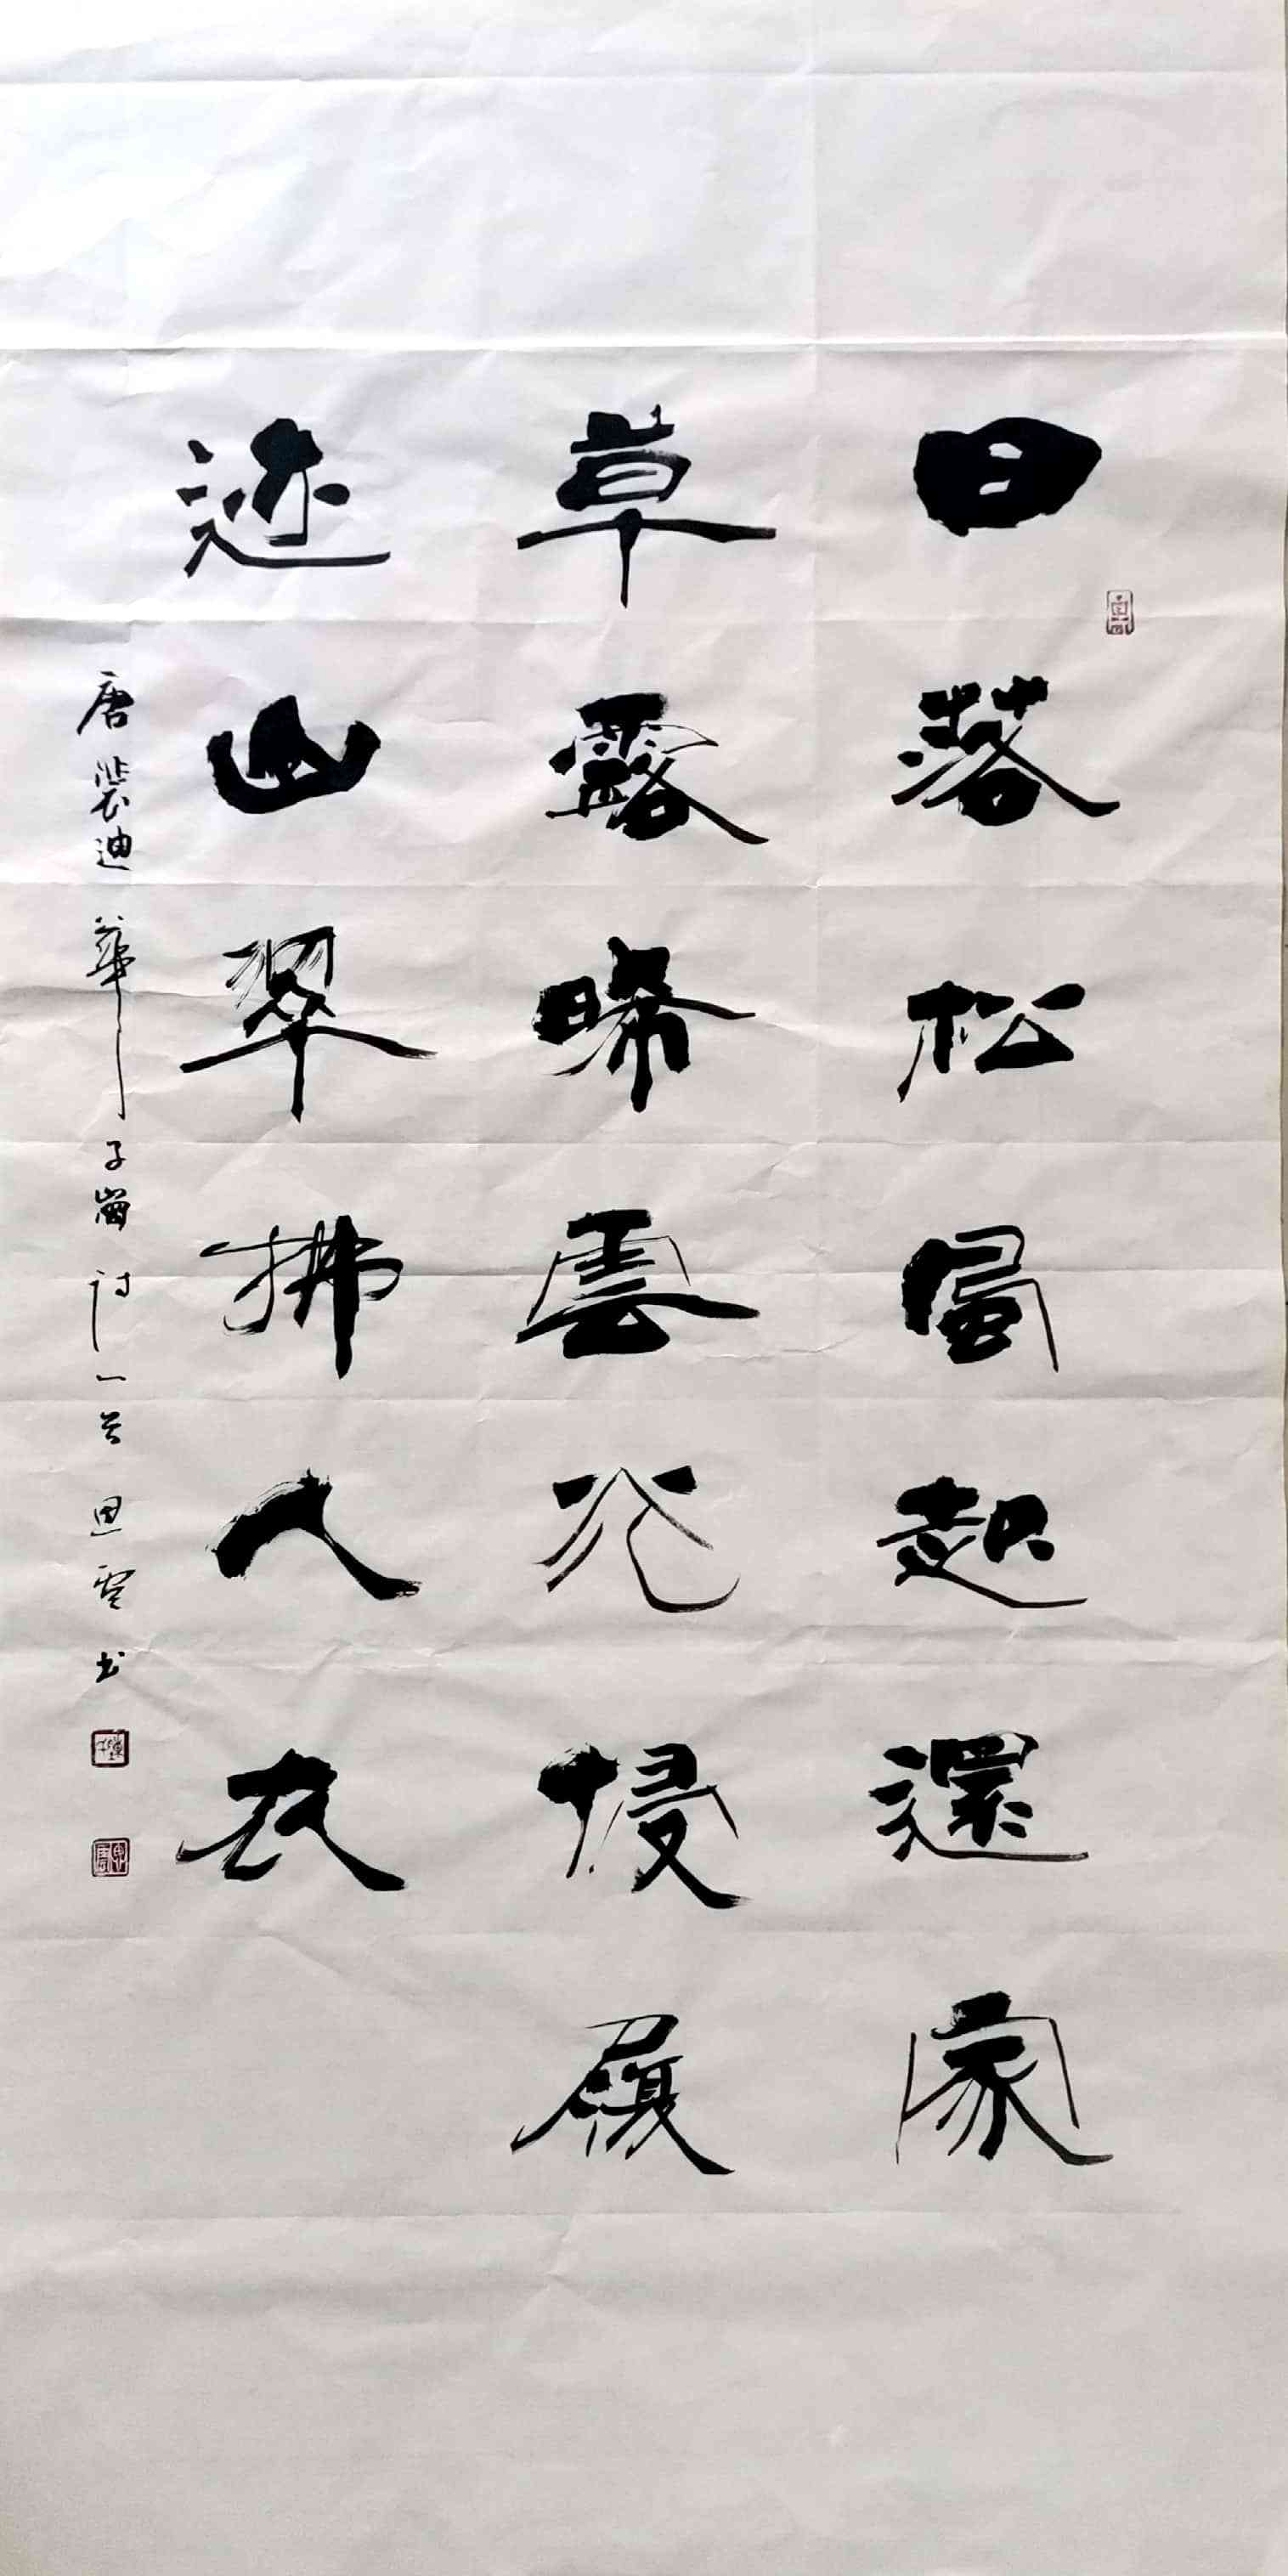 日落松風起還家
草露晞雲光侵履
迹山翠拂人衣
唐裴迪華子崗詩一首思雲书